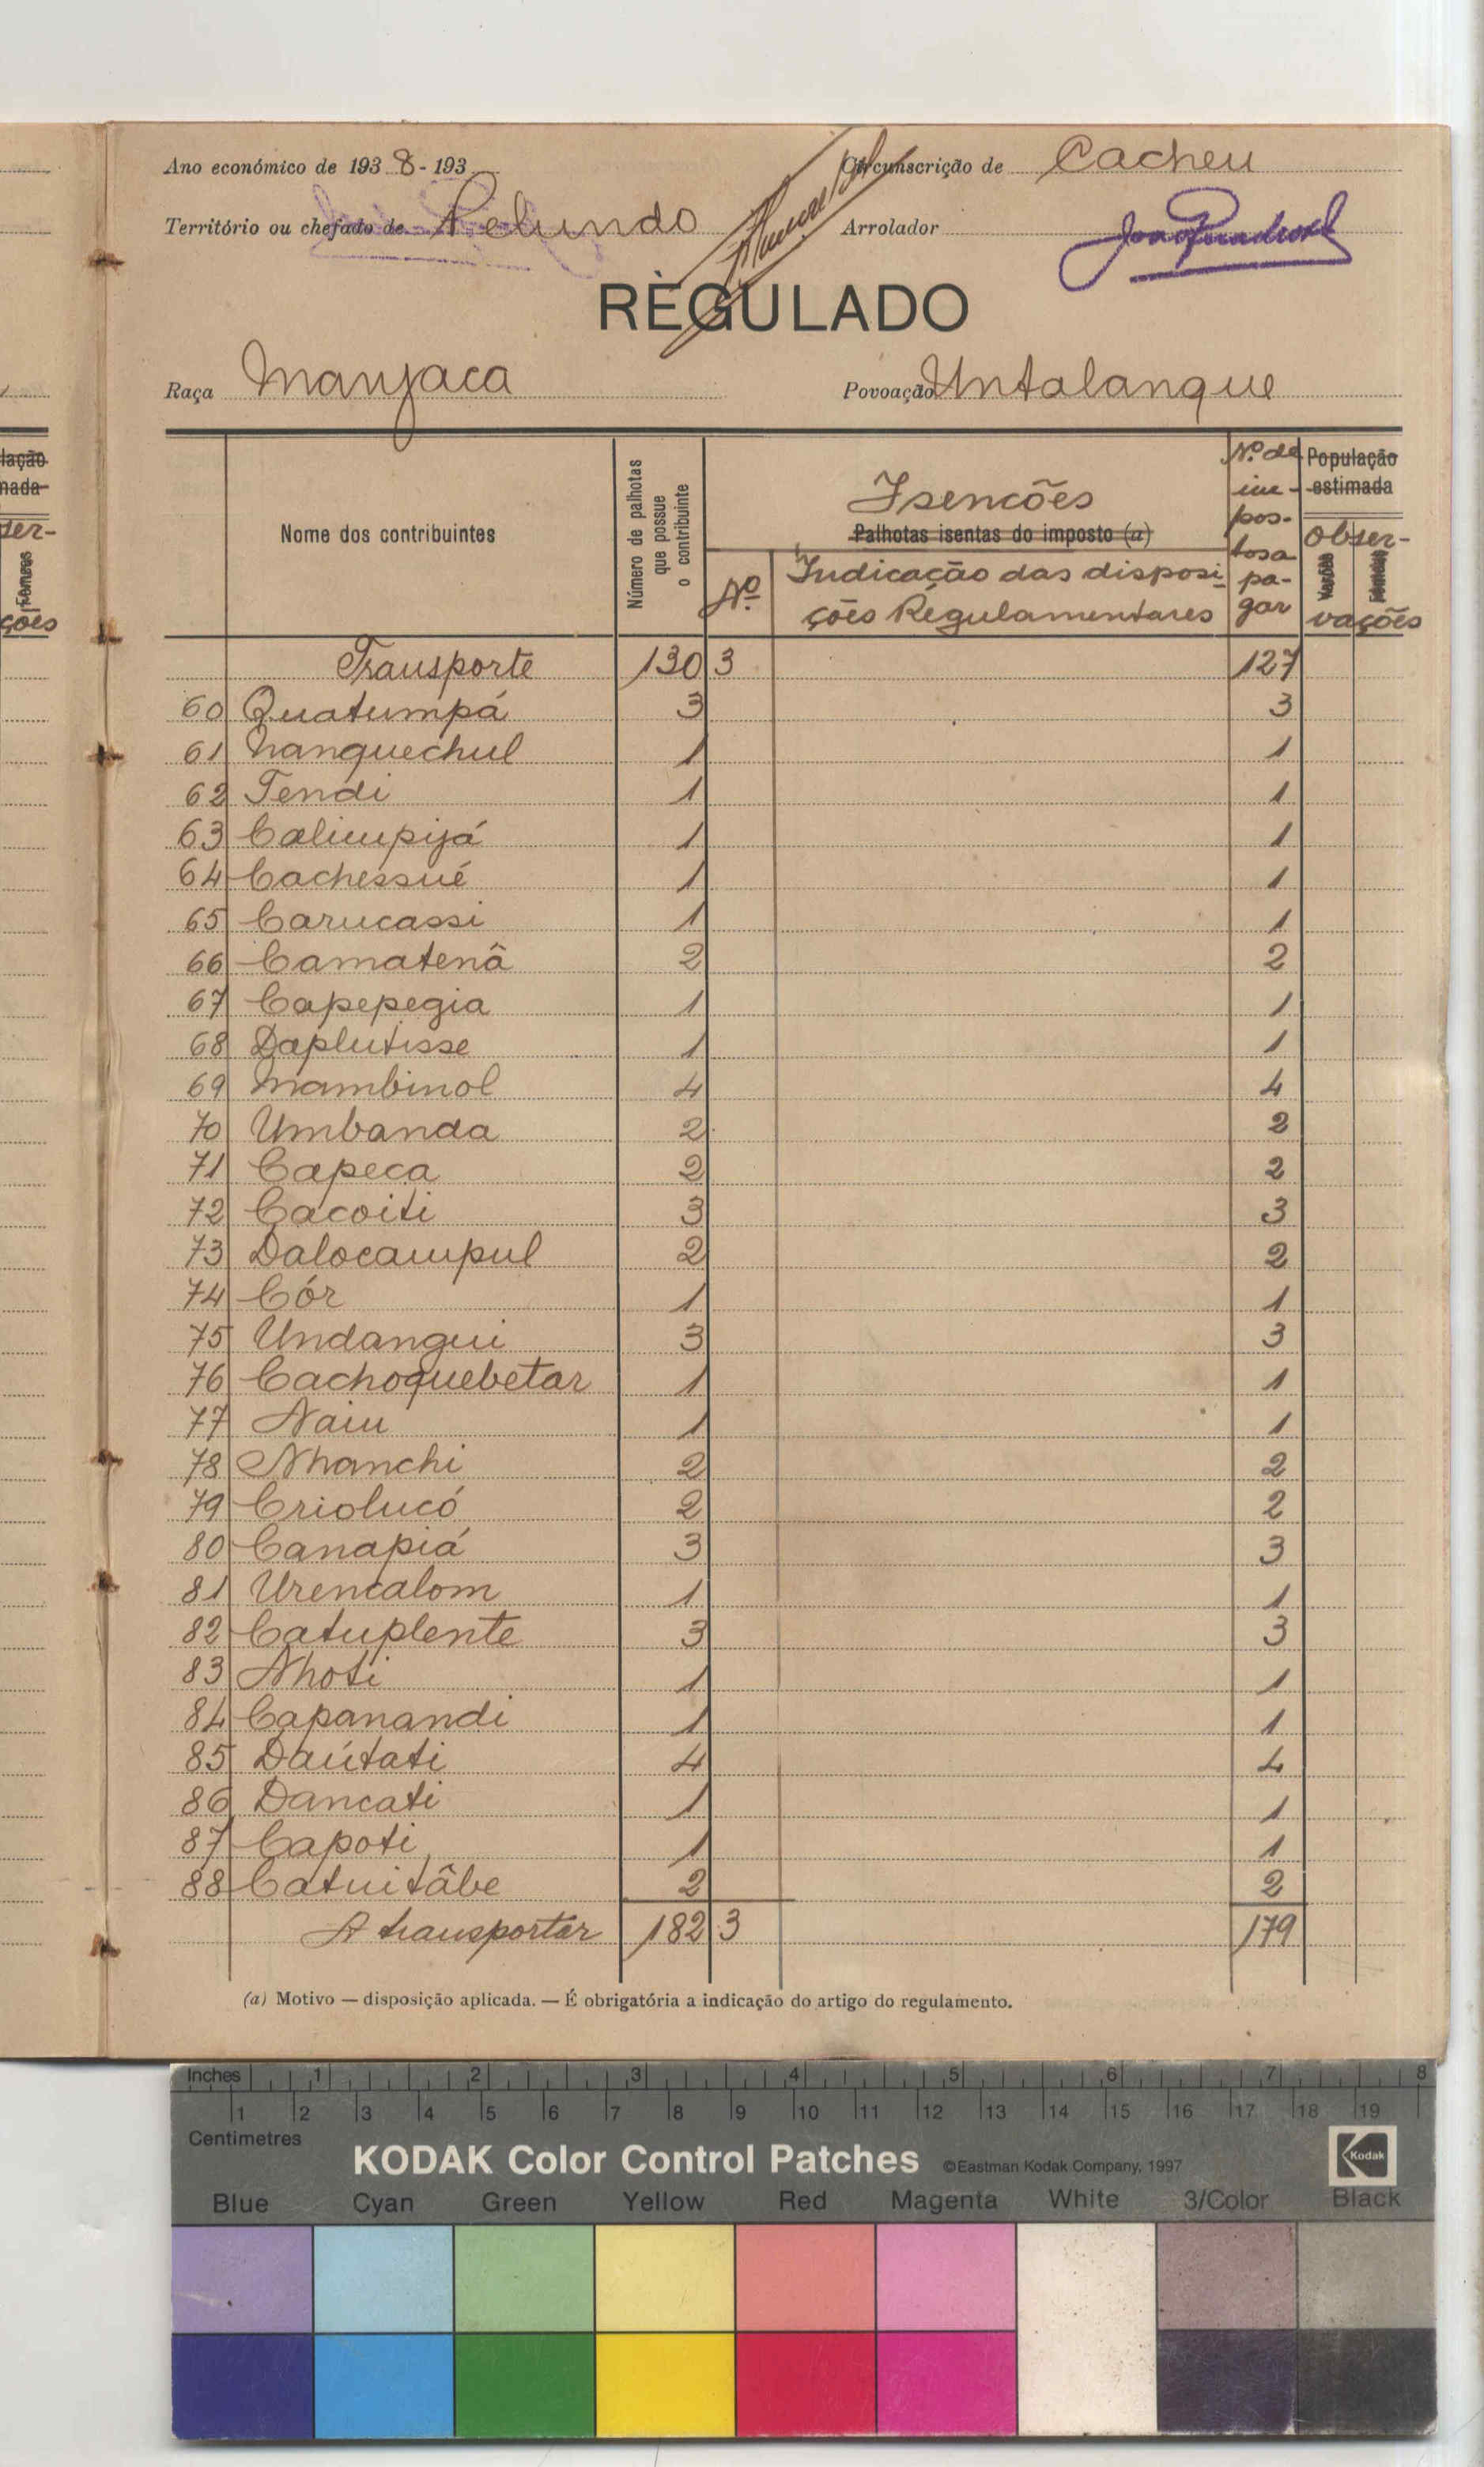 Ano económico de 1938-193
Circunscrição de Cacheu
Território ou chefado de Pelundo
Arrolador
RÈGULADO
Raça Manjaca
Povoação Untalanque
Nome dos contribuintes
Número de palhotas que possue o contribuinte
Isenções
Palhotas isentas do imposto (a)
Nº
Indicação das disposições Regulamentares
Nº de impostos a pagar
População estimada
Observações
Varões
Fêmeas
Transporte 130 3 127
60 Quatumpá 3 3
61 Nanquechul 1 1
62 Tendi 1 1
63 Calimpijá 1 1
64 Cachessué 1 1
65 Carucassi 1 1
66 Camatenâ 2 2
67 Capepegia 1 1
68 Daplutisse 1 1
69 Mambinol 4 4
70 Umbanda 2 2
71 Capeca 2 2
72 Cacoiti 3 3
73 Dalocampul 2 2
74 Cór 1 1
75 Undangui 3 3
76 Cachoquebetar 1 1
77 Naiu 1 1
78 Nhanchi 2 2
79 Criolucó 2 2
80 Canapiá 3 3
81 Urencalom 1 1
82 Catuplente 3 3
83 Nhoti 1 1
84 Capanandi 1 1
85 Daútati 4 4
86 Dancati 1 1
87 Capoti 1 1
88 Catuitâbe 2 2
A transportar 182 3 179
(a) Motivo — disposição aplicada. — É obrigatória a indicação do artigo do regulamento.
lação
nada
ser-
Fêmeas
ções
Inches 1 2 3 4 5 6 7 8
1 2 3 4 5 6 7 8 9 10 11 12 13 14 15 16 17 18 19
Centimetres
KODAK Color Control Patches ©Eastman Kodak Company, 1997 Kodak
Blue Cyan Green Yellow Red Magenta White 3/Color Black